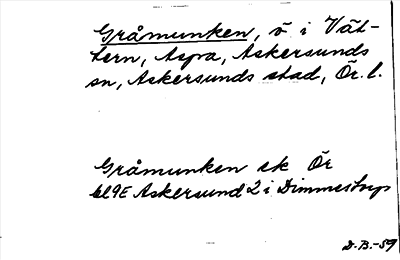 Gråmunken, ö i Vät-
tern, Aspa, Askersunds
sn, Askersunds stad, Ör. l.
Gråmunken ek Ör
bl 9E Askersund 2 i Dimmestorp
D.B.-59